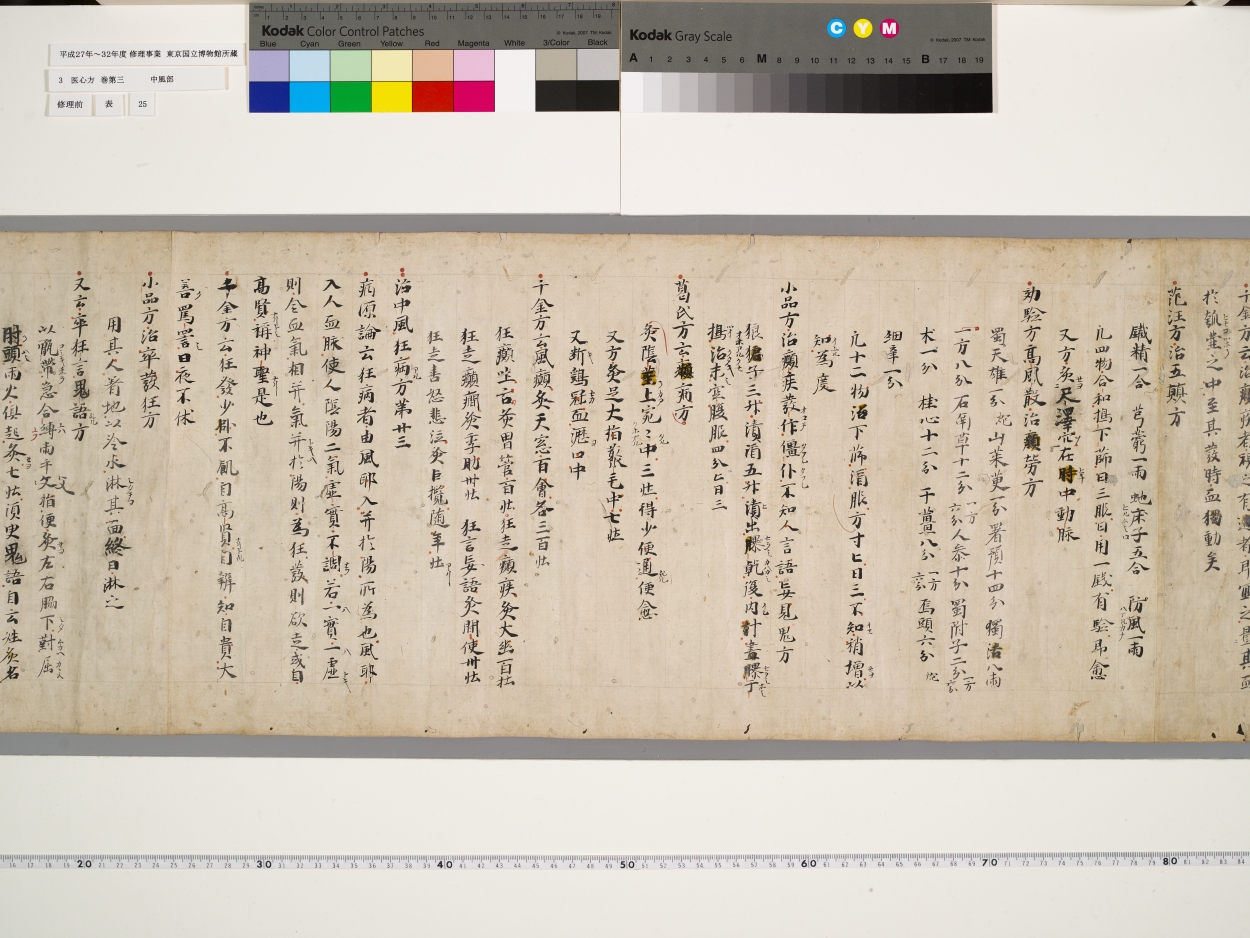 平成27年～32年度 修理事業 東京国立博物館所蔵
3 医心方 巻第三 中風部
修理前 表 25
Kodak Color Control Patches
Blue Cyan Green Yellow Red Magenta White 3/Color Black
Kodak Gray Scale
C Y M
A 1 2 3 4 5 6 M 8 9 10 11 12 13 14 15 B 17 18 19
於 之中至其發時血獨動矣
范汪方治五癲方
鐵精一合 芎藭一兩 虵床子五合 防風一兩
凡四物合和搗下篩日三服日用一 有驗即愈
又方灸尺澤穴在肘中動脉
効驗方髙風散治癲 方
蜀天雄 分 山茱萸一分 署預十四分 獨活八兩
一方八分石南草十二分 一方六分人參十分 蜀附子二分
朮一分 桂心十二分 干薑八分 一方六分 烏頭六分
細辛一分
凡十二物治下篩酒服方寸匕日三不知稍增以
知為度
小品方治癲疾發作僵仆不知人言語妄見鬼方
狼 子三升漬酒五升漬出曝乾復内汁盡曝
搗治末 服四分匕日三
葛氏方云癲病方
灸陰莖上宛々中三壯得少便通便愈
又方灸足大指叢毛中七壯
又斬鷄冠血瀝口中
千金方云風癲灸天窓百會各三百壯
狂癲 灸胃管百壯狂走癲疾灸大幽百壯
狂走癲癇灸季肋卅壯 狂言妄語灸間使卅壯
狂走喜怒悲泣灸巨 隨年壯
治中風狂病方第廿三
病源論云狂病者由風耶入并於陽所為也風耶
入人血脉使人陰陽二氣虛實不調若一實一虛
則令血氣相并氣并於陽則為狂發則欲走或自
髙賢稱神聖是也
千金方云狂發少卧不飢自髙賢自辨知自貴大
善罵詈日夜不休
小品方治卒發狂方
用其人着地以冷水淋其面終日淋之
又云卒狂言鬼語方
以 急合縛兩手大指便灸左右脇下對屈
肘頭兩火俱起灸七壯須臾鬼語自云姓 名
20 30 40 50 60 70 80